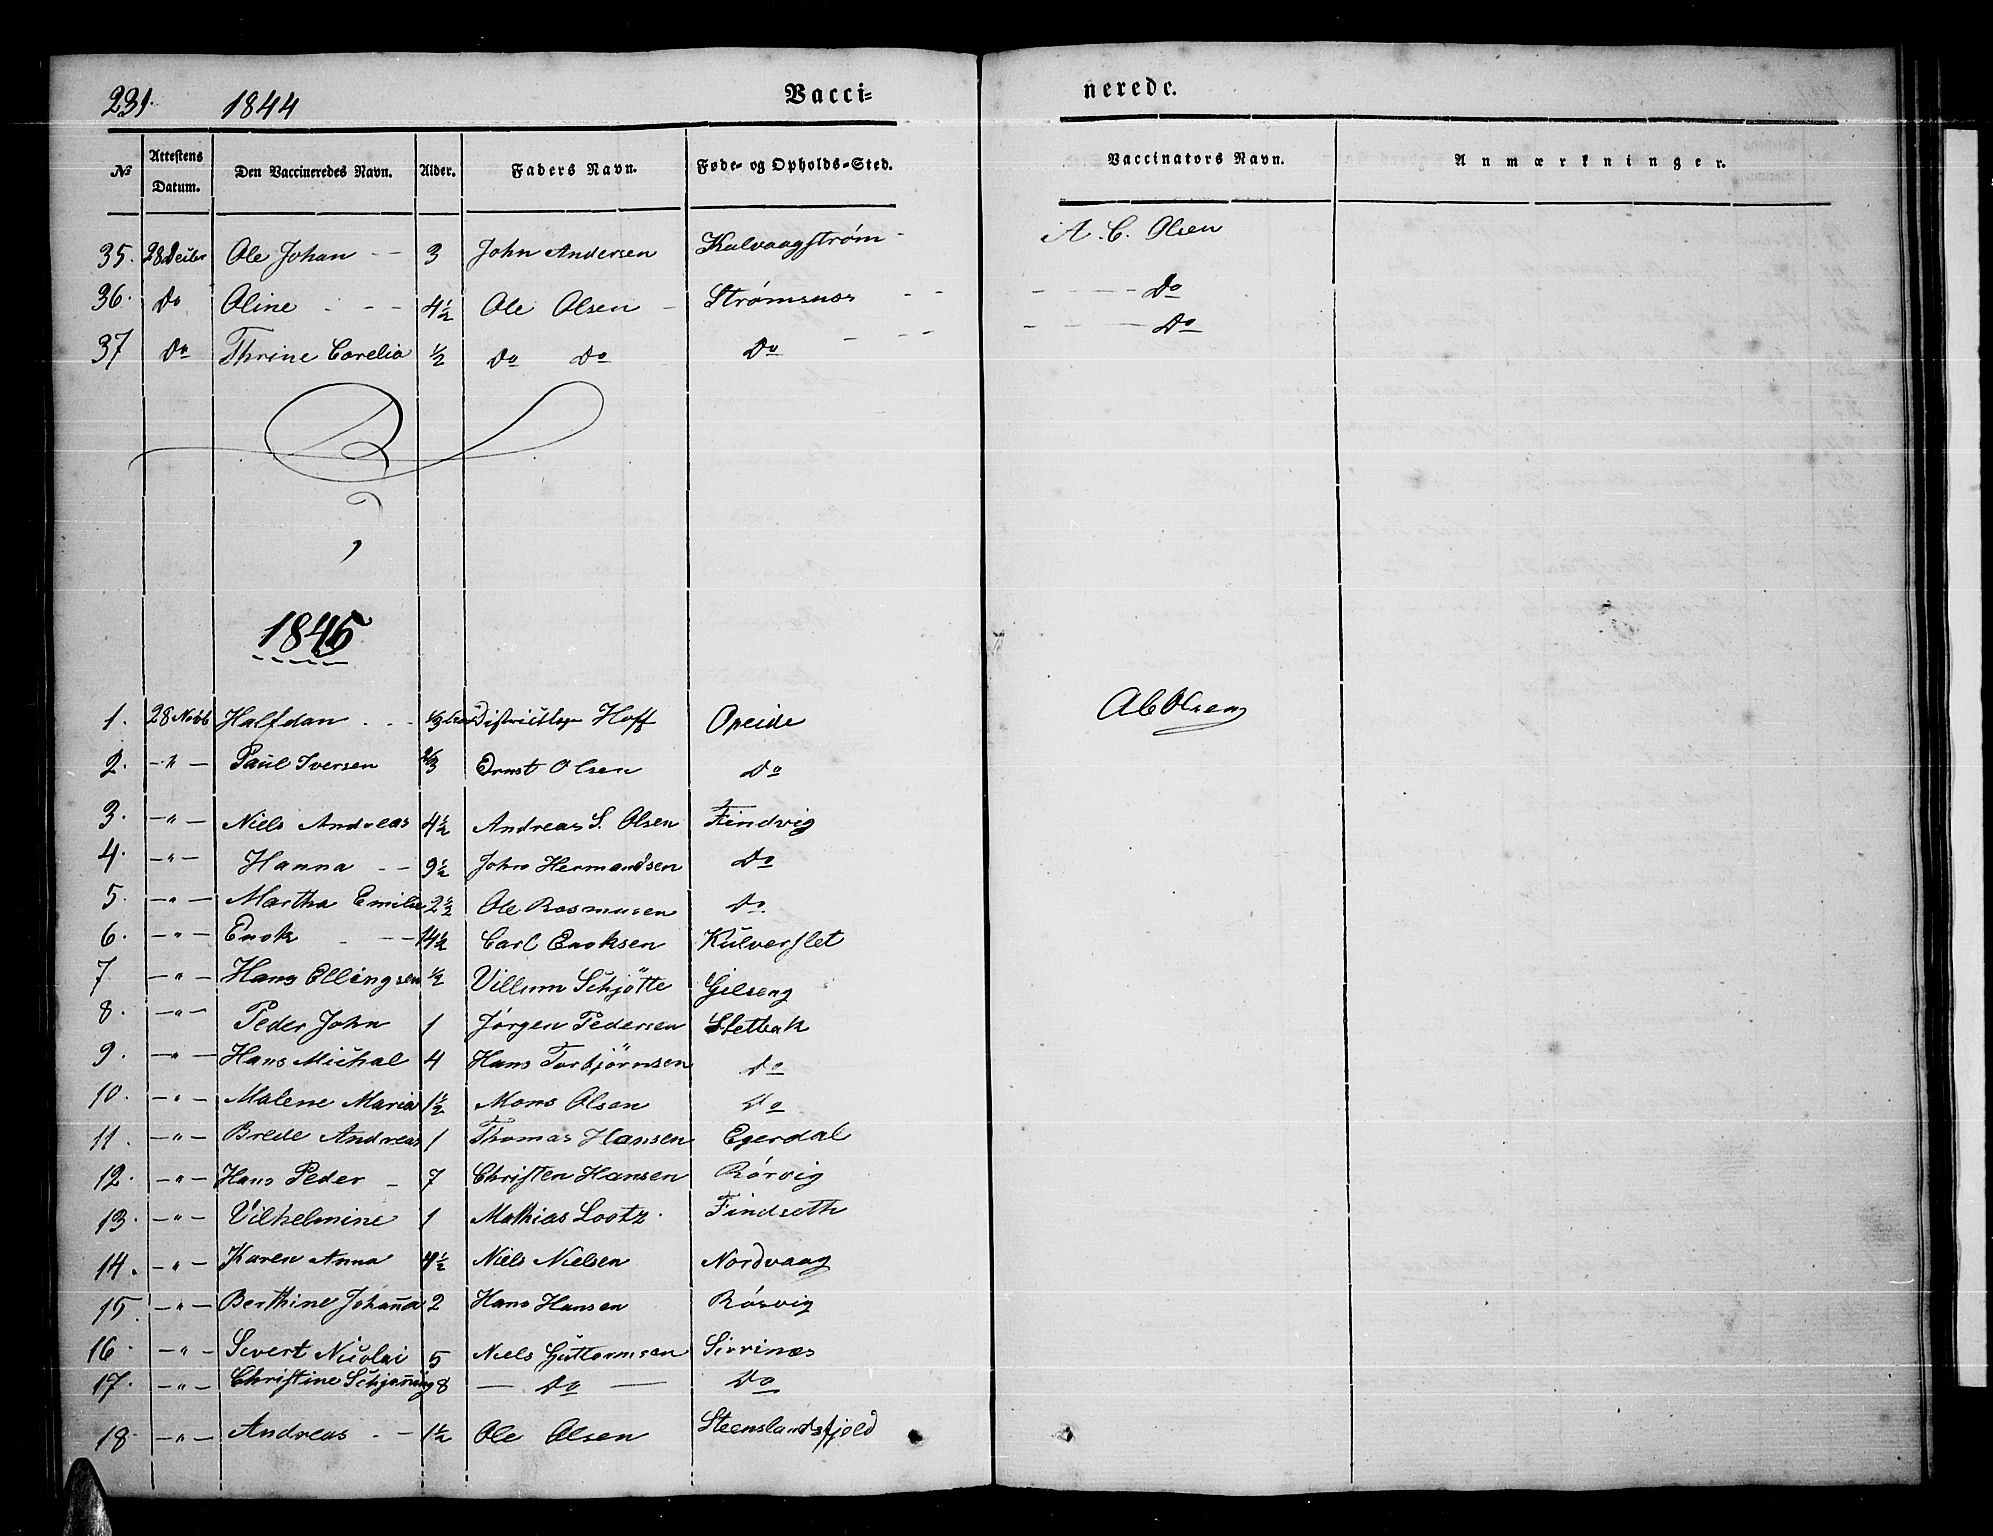 231. 1844 Vacci- nerede.
№ Attestens Datum. Den Vaccineredes Navn. Alder. Faders Navn. Føde- og Opholds-Sted. Vaccinators Navn. Anmærkninger.
35. 28 Decbr Ole Johan - - 3 John Andersen Kalvaagstrøm - A. C. Olsen
36. Do Oline - - - 4½ Ole Olsen - Strømsnos - - - - - - Do
37 Do Thrine Corelia ½ Do Do Do - - - - - - - Do
1845
1. 28 Novb Halfdan - - - Hoff Opeide A C Olsen
2. - " - Paul Iversen 2/3 Ernst Olsen Do
3. - " - Niels Andreas 4½ Andreas S. Olsen Findvig
4. - " - Hanna - - 9½ John Hermandsen Do
5. - " - Martha Emilie 2½ Ole Rasmusen Do.
6. - " - Enok - - - 14½ Carl Enoksen Kulverflet
7. - " - Hans Ellingsen ½ Villum Schjötte Gilseng
8. - " - Peder John 1 Jørgen Pedersen Stetbak
9. - " - Hans Michal 4 Hans Torbjørnsen Do
10. - " - Malene Maria 1½ Mons Olsen Do
11. - " - Brede Andreas 1 Thomas Hansen Egerdal
12. - " - Hans Peder - 7 Christen Hansen Rörvig
13. - " - Vilhelmine 1 Mathias Lootz. Findseth
14. - " - Karen Anna 4½ Niels Nielsen Nordvaag
15. - " - Berthine Johanna 2 Hans Hansen Rösvig
16. - " - Sivert Nicolai 5 Niels Guttormsen Sirrinæs
17. - " - Christine Schjanning 8 - Do - Do
18. - " - Andreas - - 1½ Ole Olsen Steenslandsfjold